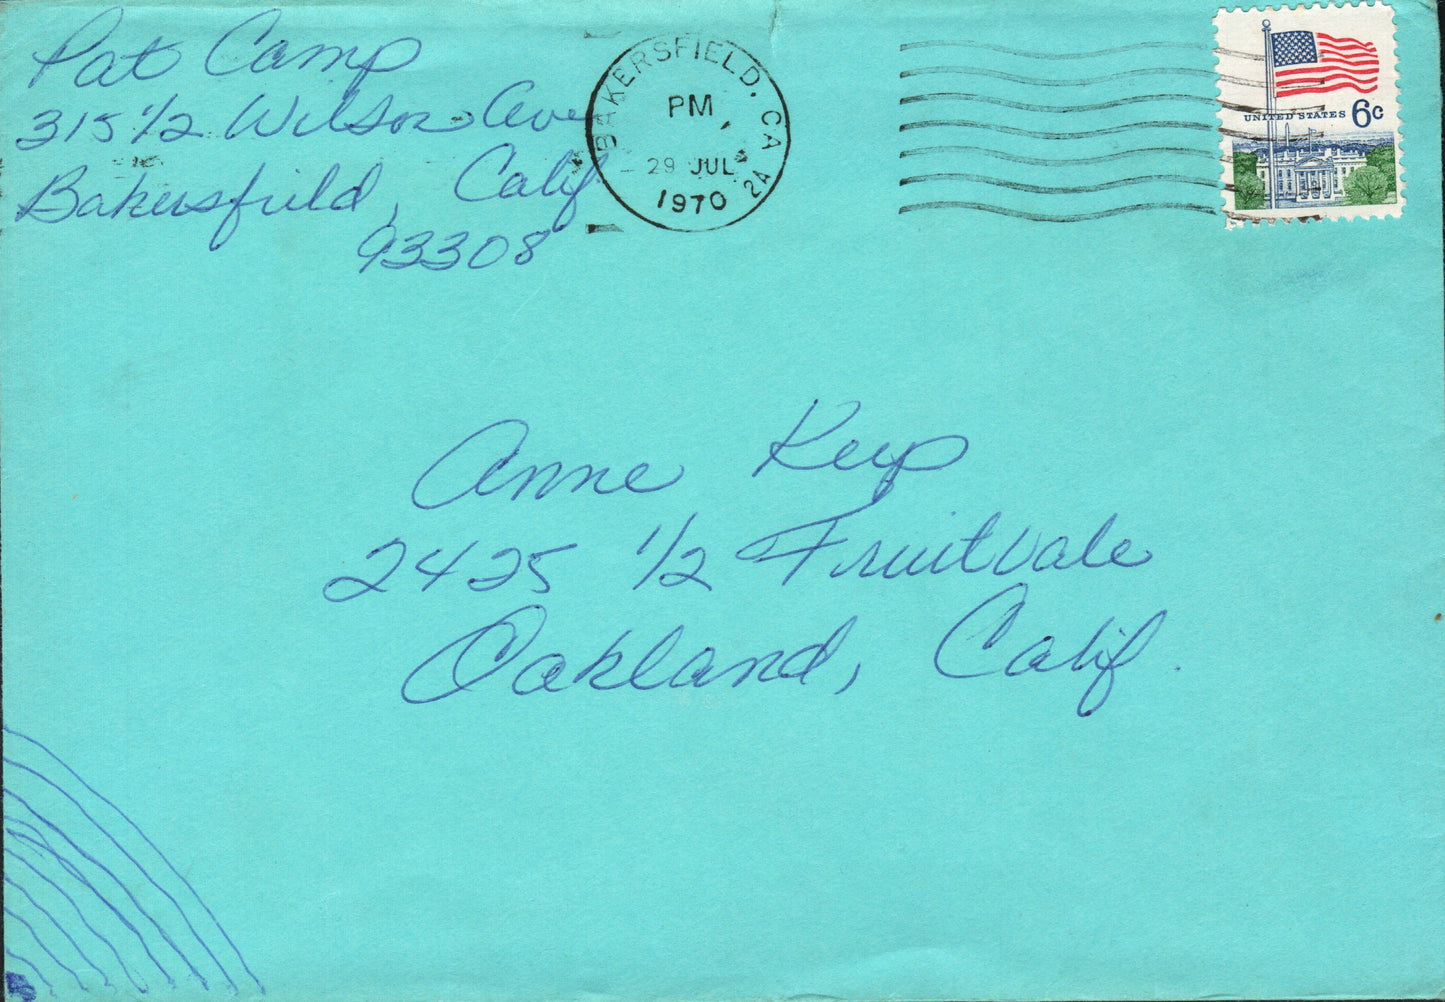 Pat Camp
315 1/2 Wilson Ave
Bakersfield, Calif
93308
BAKERSFIELD, CA 2A
PM
29 JUL
1970
UNITED STATES 6c
Anne Keep
2425 1/2 Fruitvale
Oakland, Calif.